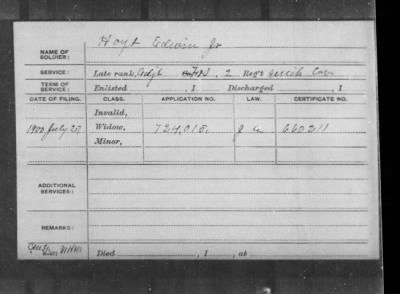 NAME OF SOLDIER: Hoyt Edwin Jr
SERVICE: Late rank, Adjt F&S, 2 Reg't Mich Cav
TERM OF SERVICE: Enlisted , 1 Discharged , 1
DATE OF FILING. CLASS. APPLICATION NO. LAW. CERTIFICATE NO.
Invalid,
1902 July 25 Widow, 724,015. 660211
Minor,
ADDITIONAL SERVICES:
REMARKS:
Died , 1 , at